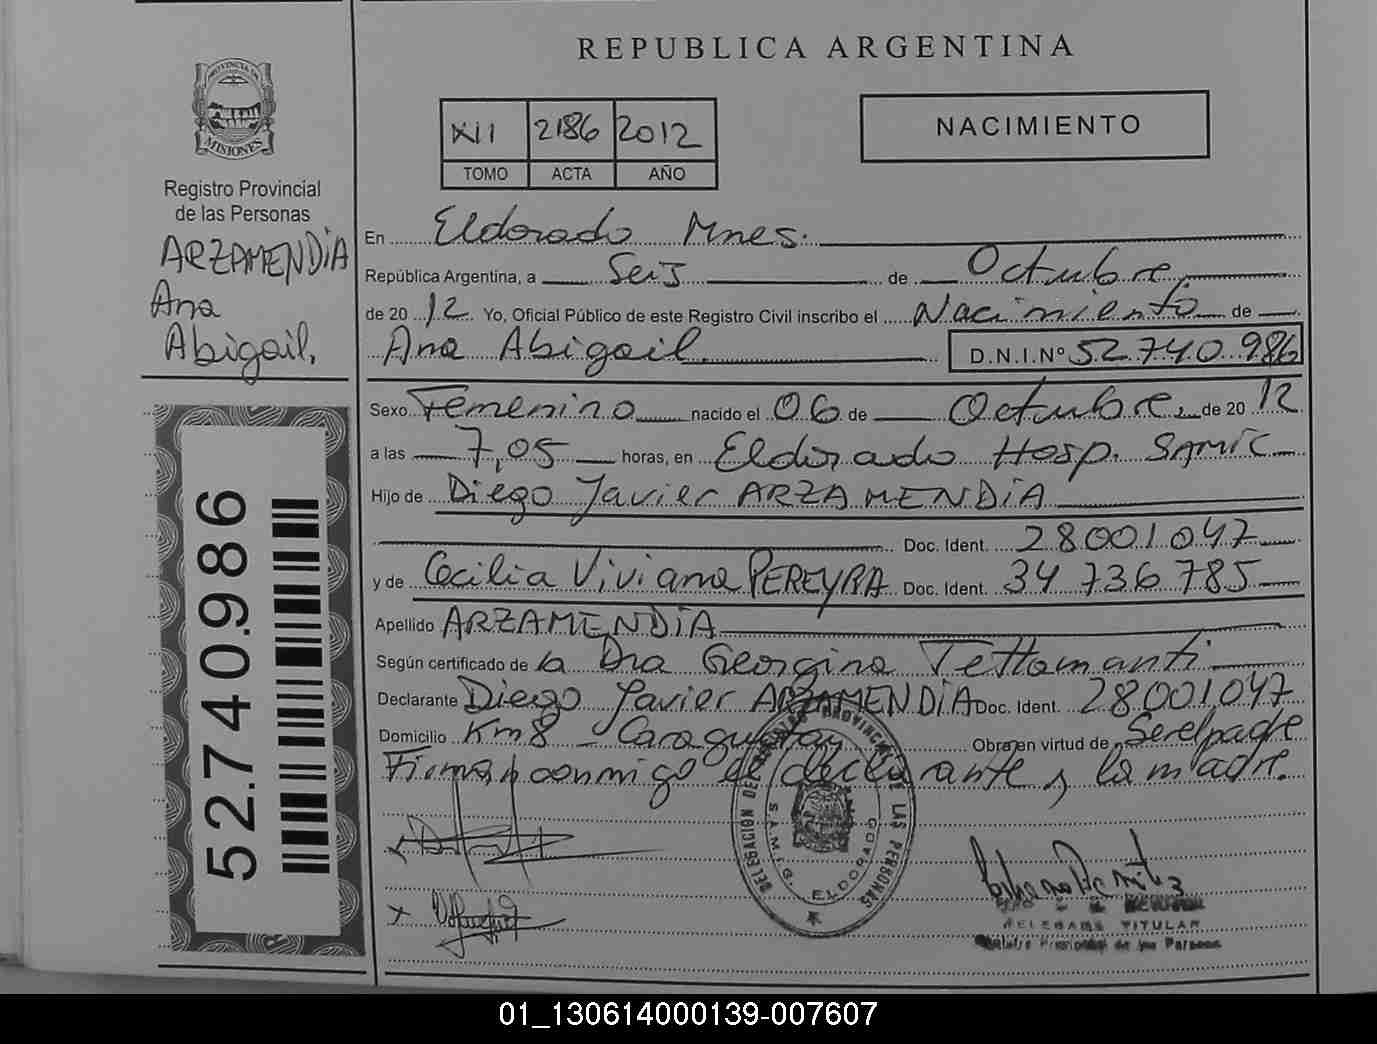 REPUBLICA ARGENTINA
PROVINCIA DE
MISIONES
Registro Provincial
de las Personas
ARZAMENDIA
Ana
Abigail.
52.740.986
XII 2186 2012
TOMO ACTA AÑO
NACIMIENTO
En Eldorado Mnes.
República Argentina, a Seis de Octubre
de 20 12 Yo, Oficial Público de este Registro Civil inscribo el Nacimiento de
Ana Abigail D.N.I.Nº 52.740.986
Sexo Femenino nacido el 06 de Octubre de 20 12
a las 7,05 horas, en Eldorado Hosp. SAMIC
Hijo de Diego Javier ARZAMENDIA
Doc. Ident. 28001047
y de Cecilia Viviana PEREYRA Doc. Ident. 34736785
Apellido ARZAMENDIA
Según certificado de la Dra Georgina Tettamanti
Declarante Diego Javier ARZAMENDIA Doc. Ident. 28001047
Domicilio Km8 - Caraguatay Obra en virtud de Ser el padre
Firman conmigo el declarante y la madre.
DELEGACION DEL REGISTRO PROVINCIAL DE LAS PERSONAS
S.A.M.I.C. ELDORADO
DELEGADA TITULAR
Registro Provincial de las Personas
01_130614000139-007607